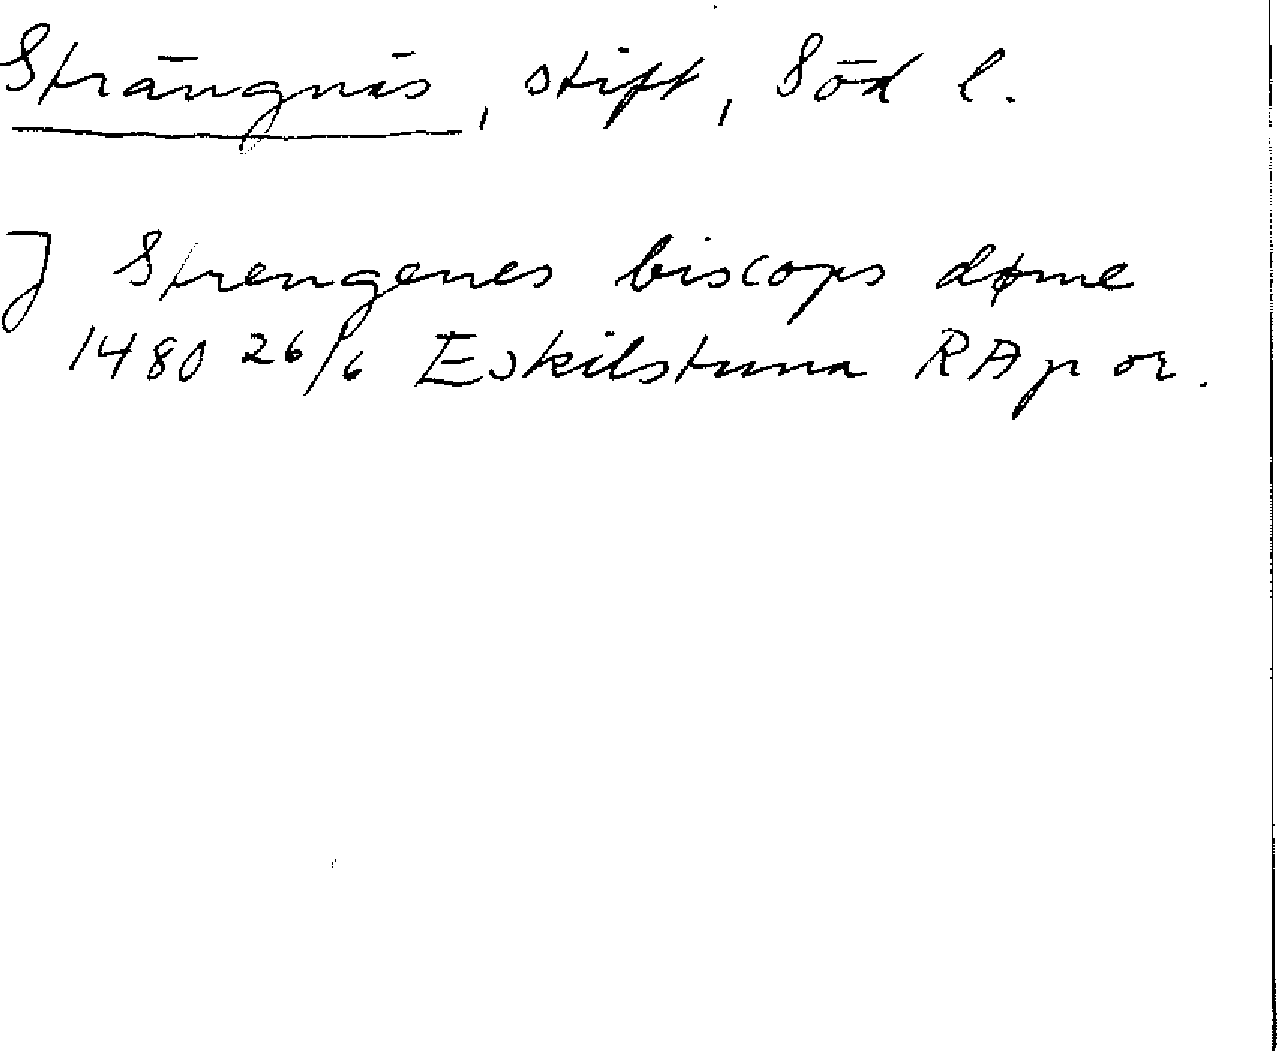 Strängnäs, stift, Söd l.
J Strengenes biscops døme
1480 26/6 Eskilstuna RAp or.